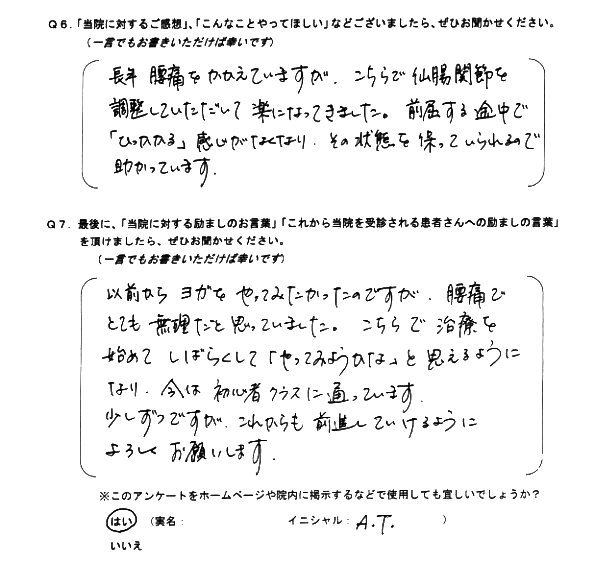 Q6.「当院に対するご感想」、「こんなことやってほしい」などございましたら、ぜひお聞かせください。
(一言でもお書きいただけば幸いです)
長年 腰痛をかかえていますが、こちらで仙腸関節を
調整していただいて 楽になってきました。前屈する途中で
「ひっかかる」感じがなくなり、その状態を保っていられるので
助かっています。
Q7.最後に、「当院に対する励ましのお言葉」「これから当院を受診される患者さんへの励ましの言葉」
を頂けましたら、ぜひお聞かせください。
(一言でもお書きいただけば幸いです)
以前から ヨガを やってみたかったのですが、腰痛で
とても 無理だと思っていました。こちらで 治療を
始めて しばらくして「やってみようかな」と思えるように
なり、今は 初心者クラスに通っています。
少しずつですが、これからも 前進していけるように
よろしく お願いします。
※このアンケートをホームページや院内に掲示するなどで使用しても宜しいでしょうか?
はい (実名: イニシャル: A.T. )
いいえ